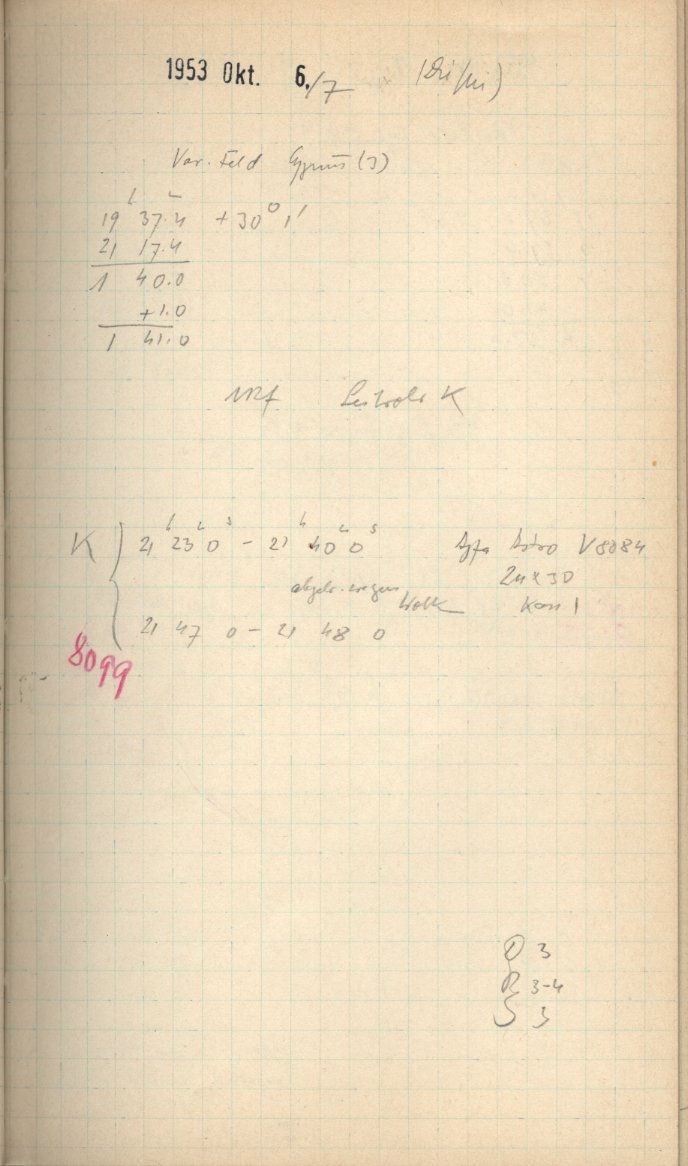 1953 Okt. 6./7
Var. Feld Cygnus (3)
19 h 37.4 + 30° 1'
21 17.4
1 40.0
+1.0
1 41.0
K
K 21 h 23 0 s - 21 h 40 0 s Agfa Astro V8084
24x30
abgebr. wegen Wolk Kass 1
21 47 0 - 21 48 0
8099
D 3
R 3-4
S 3